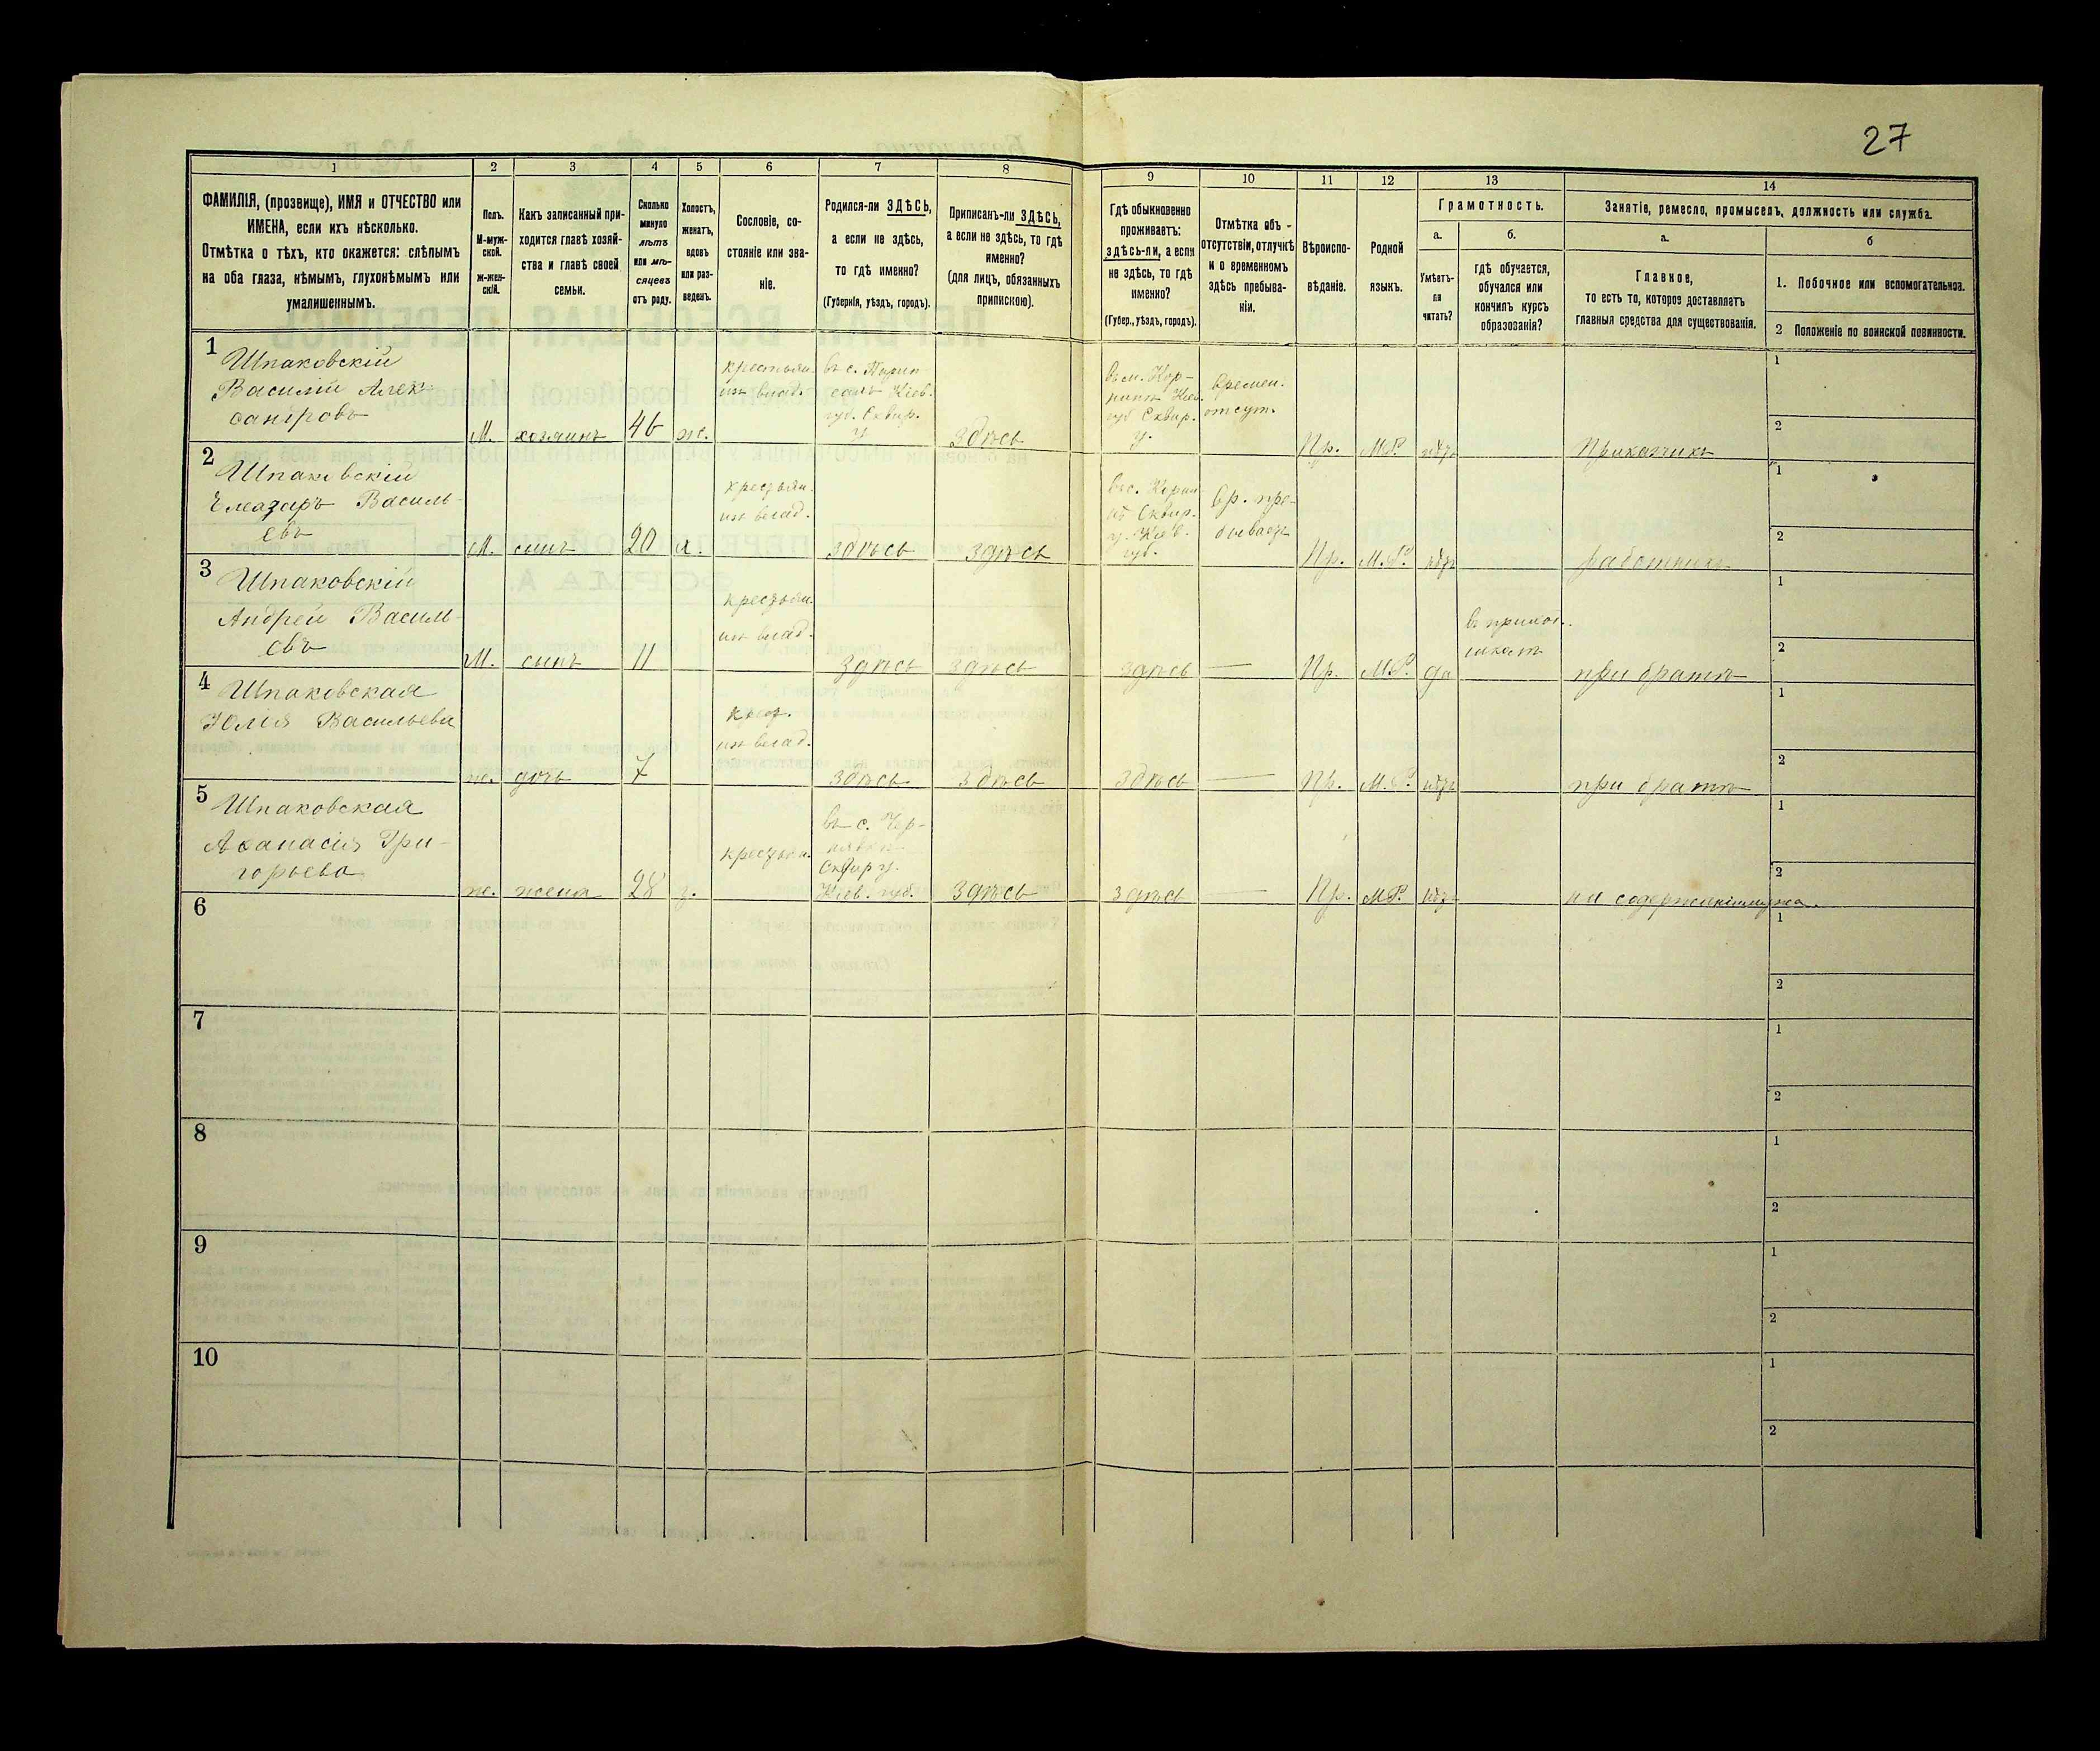 27
1 2 3 4 5 6 7 8 9 10 11 12 13 14
ФАМИЛІЯ, (прозвище), ИМЯ и ОТЧЕСТВО или
ИМЕНА, если ихъ нѣсколько.
Отмѣтка о тѣхъ, кто окажется: слѣпымъ
на оба глаза, нѣмымъ, глухонѣмымъ или
умалишеннымъ.
Полъ.
М-муж-
ской.
ж-жен-
скій.
Какъ записанный при-
ходится главѣ хозяй-
ства и главѣ своей
семьи.
Сколько
минуло
лѣтъ
или мѣ-
сяцевъ
отъ роду.
Холостъ,
женатъ,
вдовъ
или раз-
веденъ.
Сословіе, со-
стояніе или зва-
ніе.
Родился-ли ЗДѢСЬ,
а если не здѣсь,
то гдѣ именно?
(Губернія, уѣздъ, городъ).
Приписанъ-ли ЗДѢСЬ,
а если не здѣсь, то гдѣ
именно?
(для лицъ, обязанныхъ
припискою).
Гдѣ обыкновенно
проживаетъ:
здѣсь-ли, а если
не здѣсь, то гдѣ
именно?
(Губер., уѣздъ, городъ).
Отмѣтка объ -
отсутствіи, отлучкѣ
и о временномъ
здѣсь пребыва-
ніи.
Вѣроиспо-
вѣданіе.
Родной
языкъ.
Грамотность.
а.
Умѣетъ-
ли
читать?
б.
гдѣ обучается,
обучался или
кончилъ курсъ
образованія?
Занятіе, ремесло, промыселъ, должность или служба.
а.
Главное,
то есть то, которое доставляетъ
главныя средства для существованія.
б
1. Побочное или вспомогательное.
2 Положеніе по воинской повинности.
1
Шпаковскій
Василій Алек-
сандровъ
М.
хозяинъ
46
ж.
крестьян.
из влад.
въ с.
Кіев.
губ. Сквир.
у.
здѣсь
въ м. Кор-
нинѣ Кіев.
губ Сквир.
у.
Времен.
отсут.
Пр.
М.Р.
нѣтъ
Приказчикъ
1
2
2
Шпаковскій
Елеазаръ Василь-
евъ
М.
сынъ
20
х.
крестьян.
из влад.
здѣсь
здѣсь
въ с.
Сквир.
у. Кіев.
губ.
Вр. пре-
бываетъ
Пр.
М.Р.
нѣтъ
работникъ
1
2
3
Шпаковскій
Андрей Василь-
евъ
М.
сынъ
11
крестьян.
из влад.
здѣсь
здѣсь
здѣсь
—
Пр.
М.Р.
да
въ приход.
школѣ
при братѣ
1
2
4
Шпаковская
Юлія Васильева
ж.
дочь
7
крест.
из влад.
здѣсь
здѣсь
здѣсь
—
Пр.
М.Р.
нѣтъ
при братѣ
1
2
5
Шпаковская
Афанасія Гри-
горьева
ж.
жена
28
з.
крестьян.
въ с. Чер-
нявки
Сквир у.
Кіев. губ.
здѣсь
здѣсь
—
Пр.
М.Р.
нѣтъ
на содержаніи мужа.
1
2
6
1
2
7
1
2
8
1
2
9
1
2
10
1
2